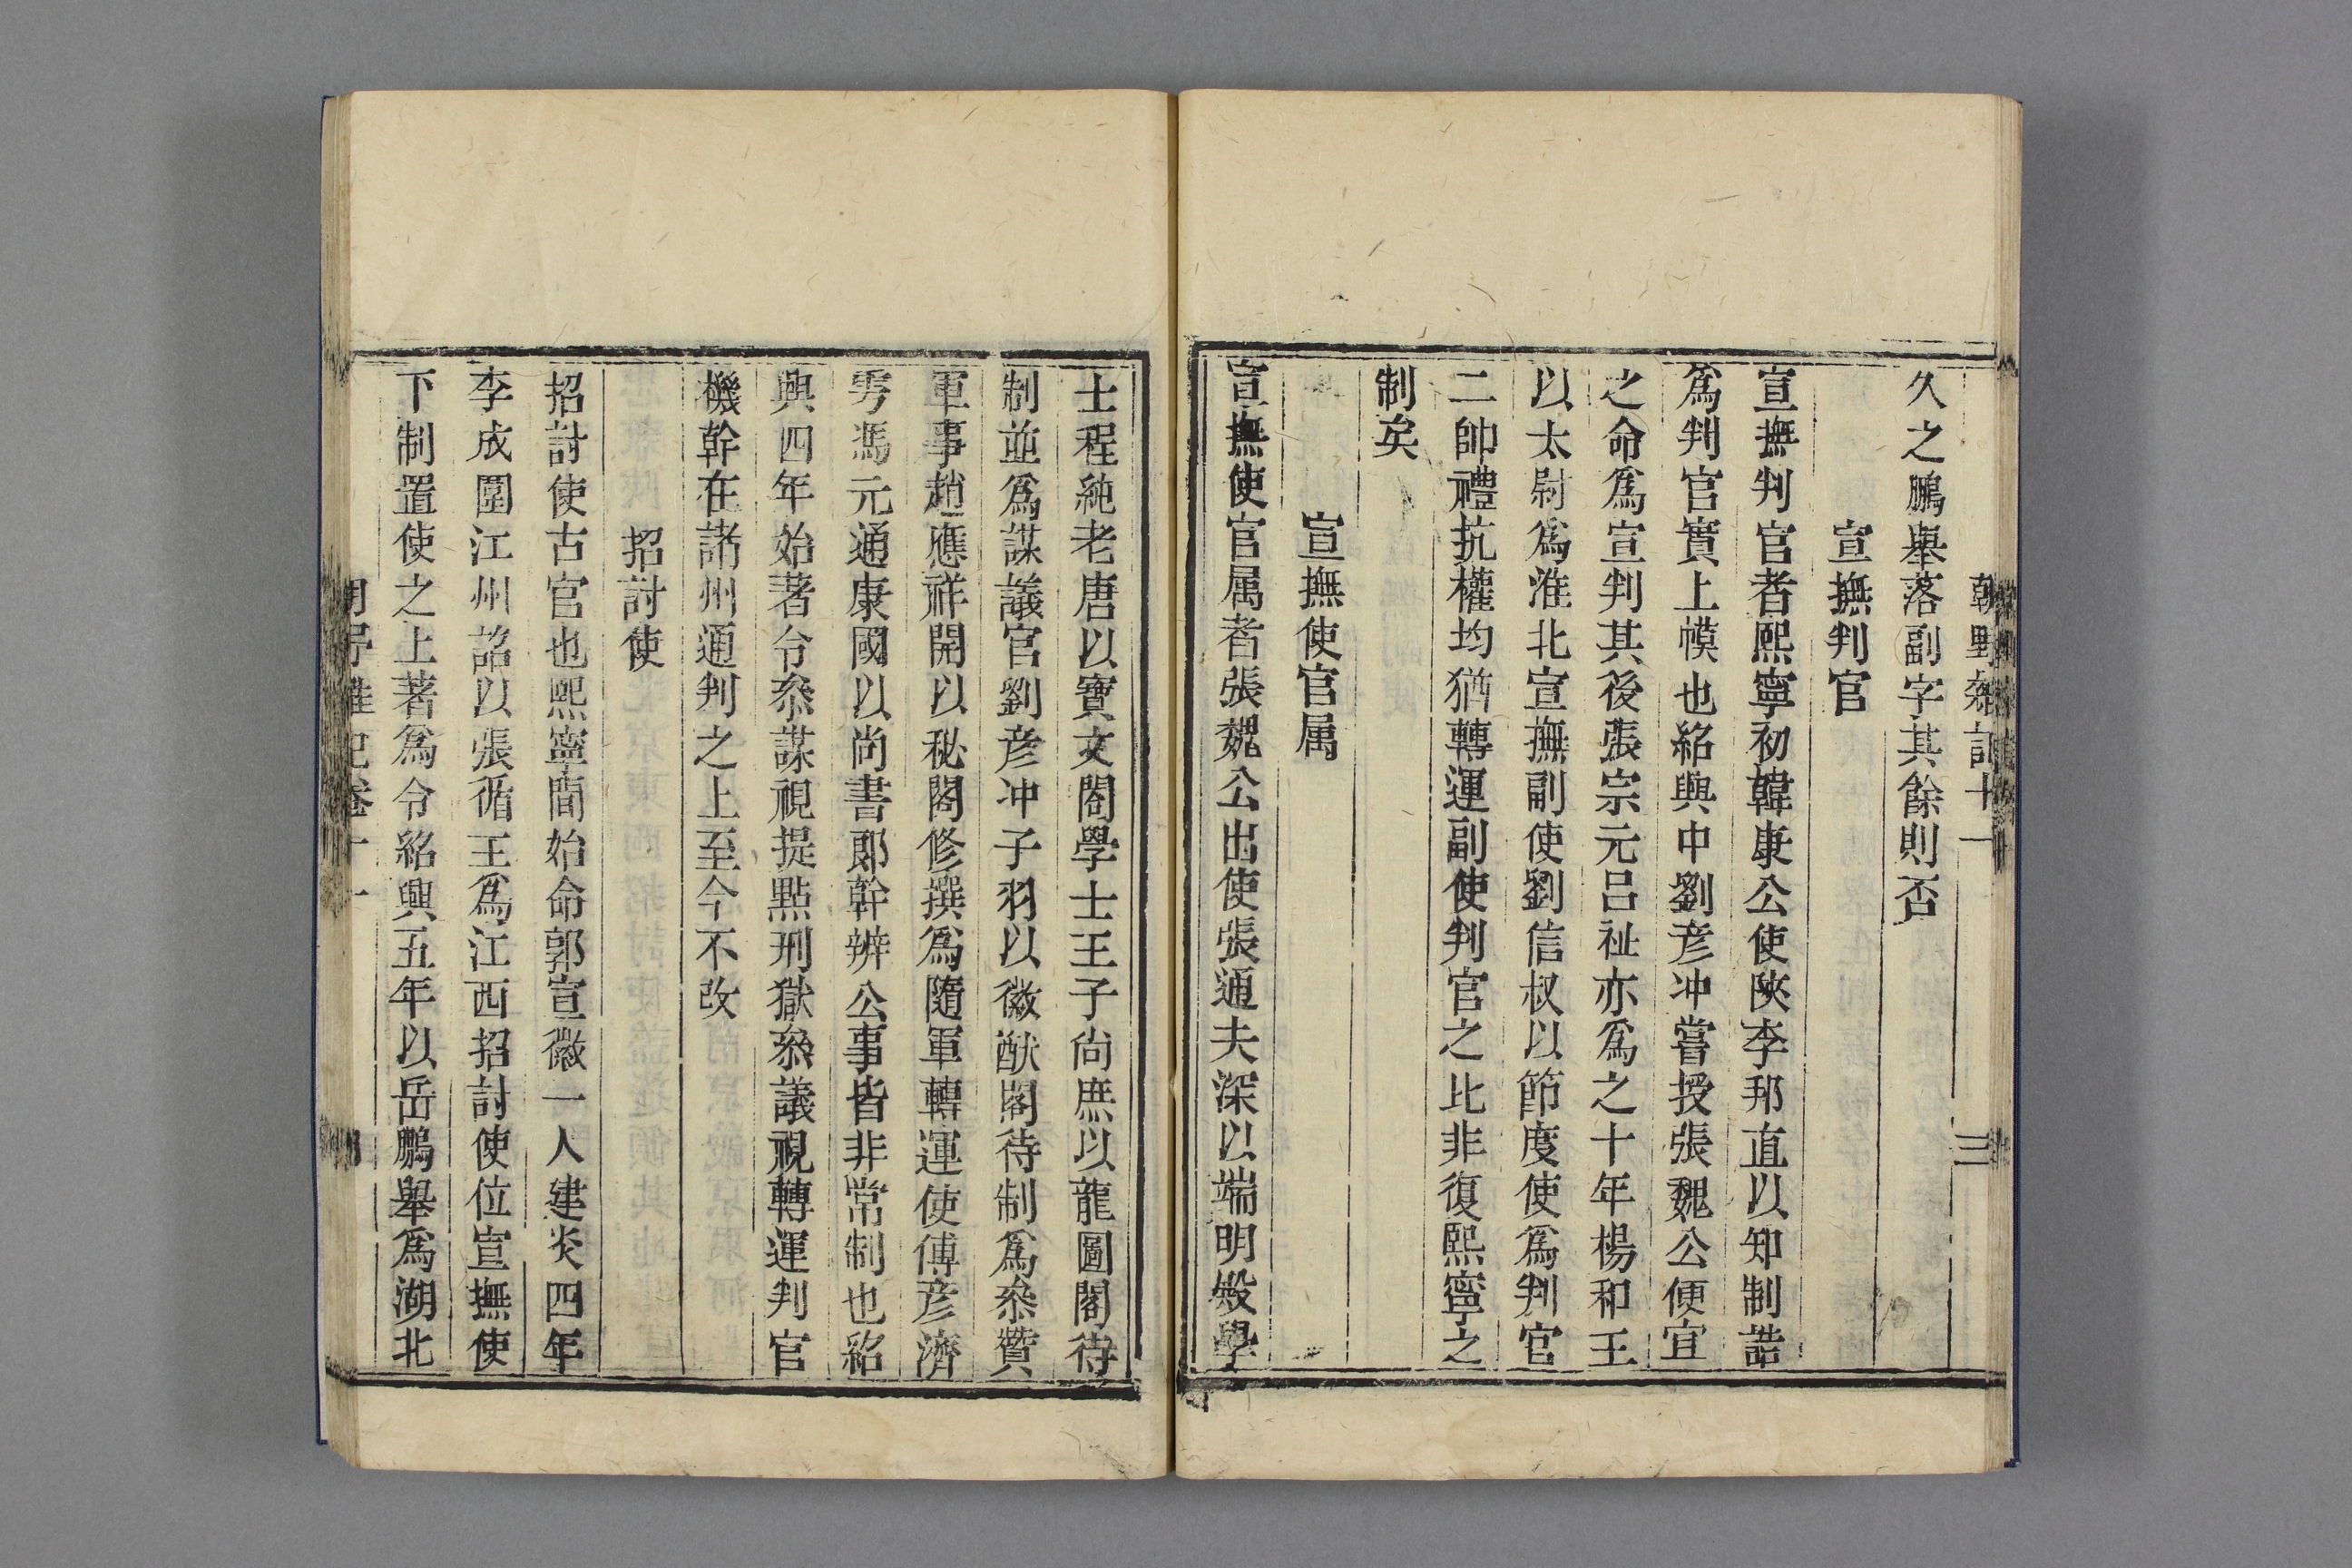 朝野雜記十一
三
久之鵬舉落副字其餘則否
宣撫判官
宣撫判官者熙寧初韓康公使陝李邦直以知制誥
爲判官實上幙也紹興中劉彦冲嘗授張魏公便宜
之命爲宣判其後張宗元吕祉亦爲之十年楊和王
以太尉爲淮北宣撫副使劉信叔以節度使爲判官
二帥禮抗權均猶轉運副使判官之比非復熙寧之
制矣
宣撫使官属
宣撫使官属者張魏公出使張通夫深以端明殿學
士程純老唐以寶文閣學士王子尙庶以龍圖閣待
制並爲謀議官劉彦冲子羽以徽猷閣待制爲叅贊
軍事趙應祥開以秘閣修撰爲隨軍轉運使傅彦濟
雱馮元通康國以尚書郎幹辦公事皆非常制也紹
興四年始著令叅謀視提點刑獄叅議視轉運判官
機幹在諸州通判之上至今不改
招討使
招討使古官也熙寧間始命郭宣徽一人建炎四年
李成圍江州詔以張循王爲江西招討使位宣撫使
下制置使之上著爲令紹興五年以岳鵬舉爲湖北